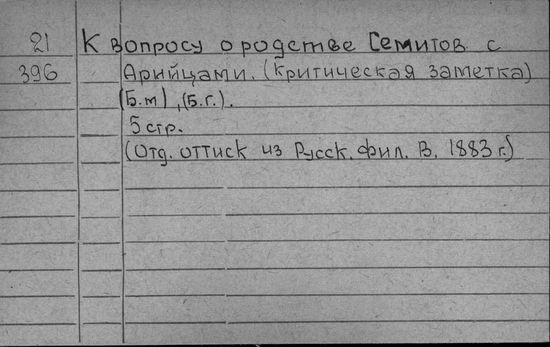 21 К вопросу о родстве Семитов с
396 Арийцами. (Критическая заметка)
(Б.м), (Б.г.).
5 стр.
(Отд. оттиск из Русск. фил. В. 1883 г.)